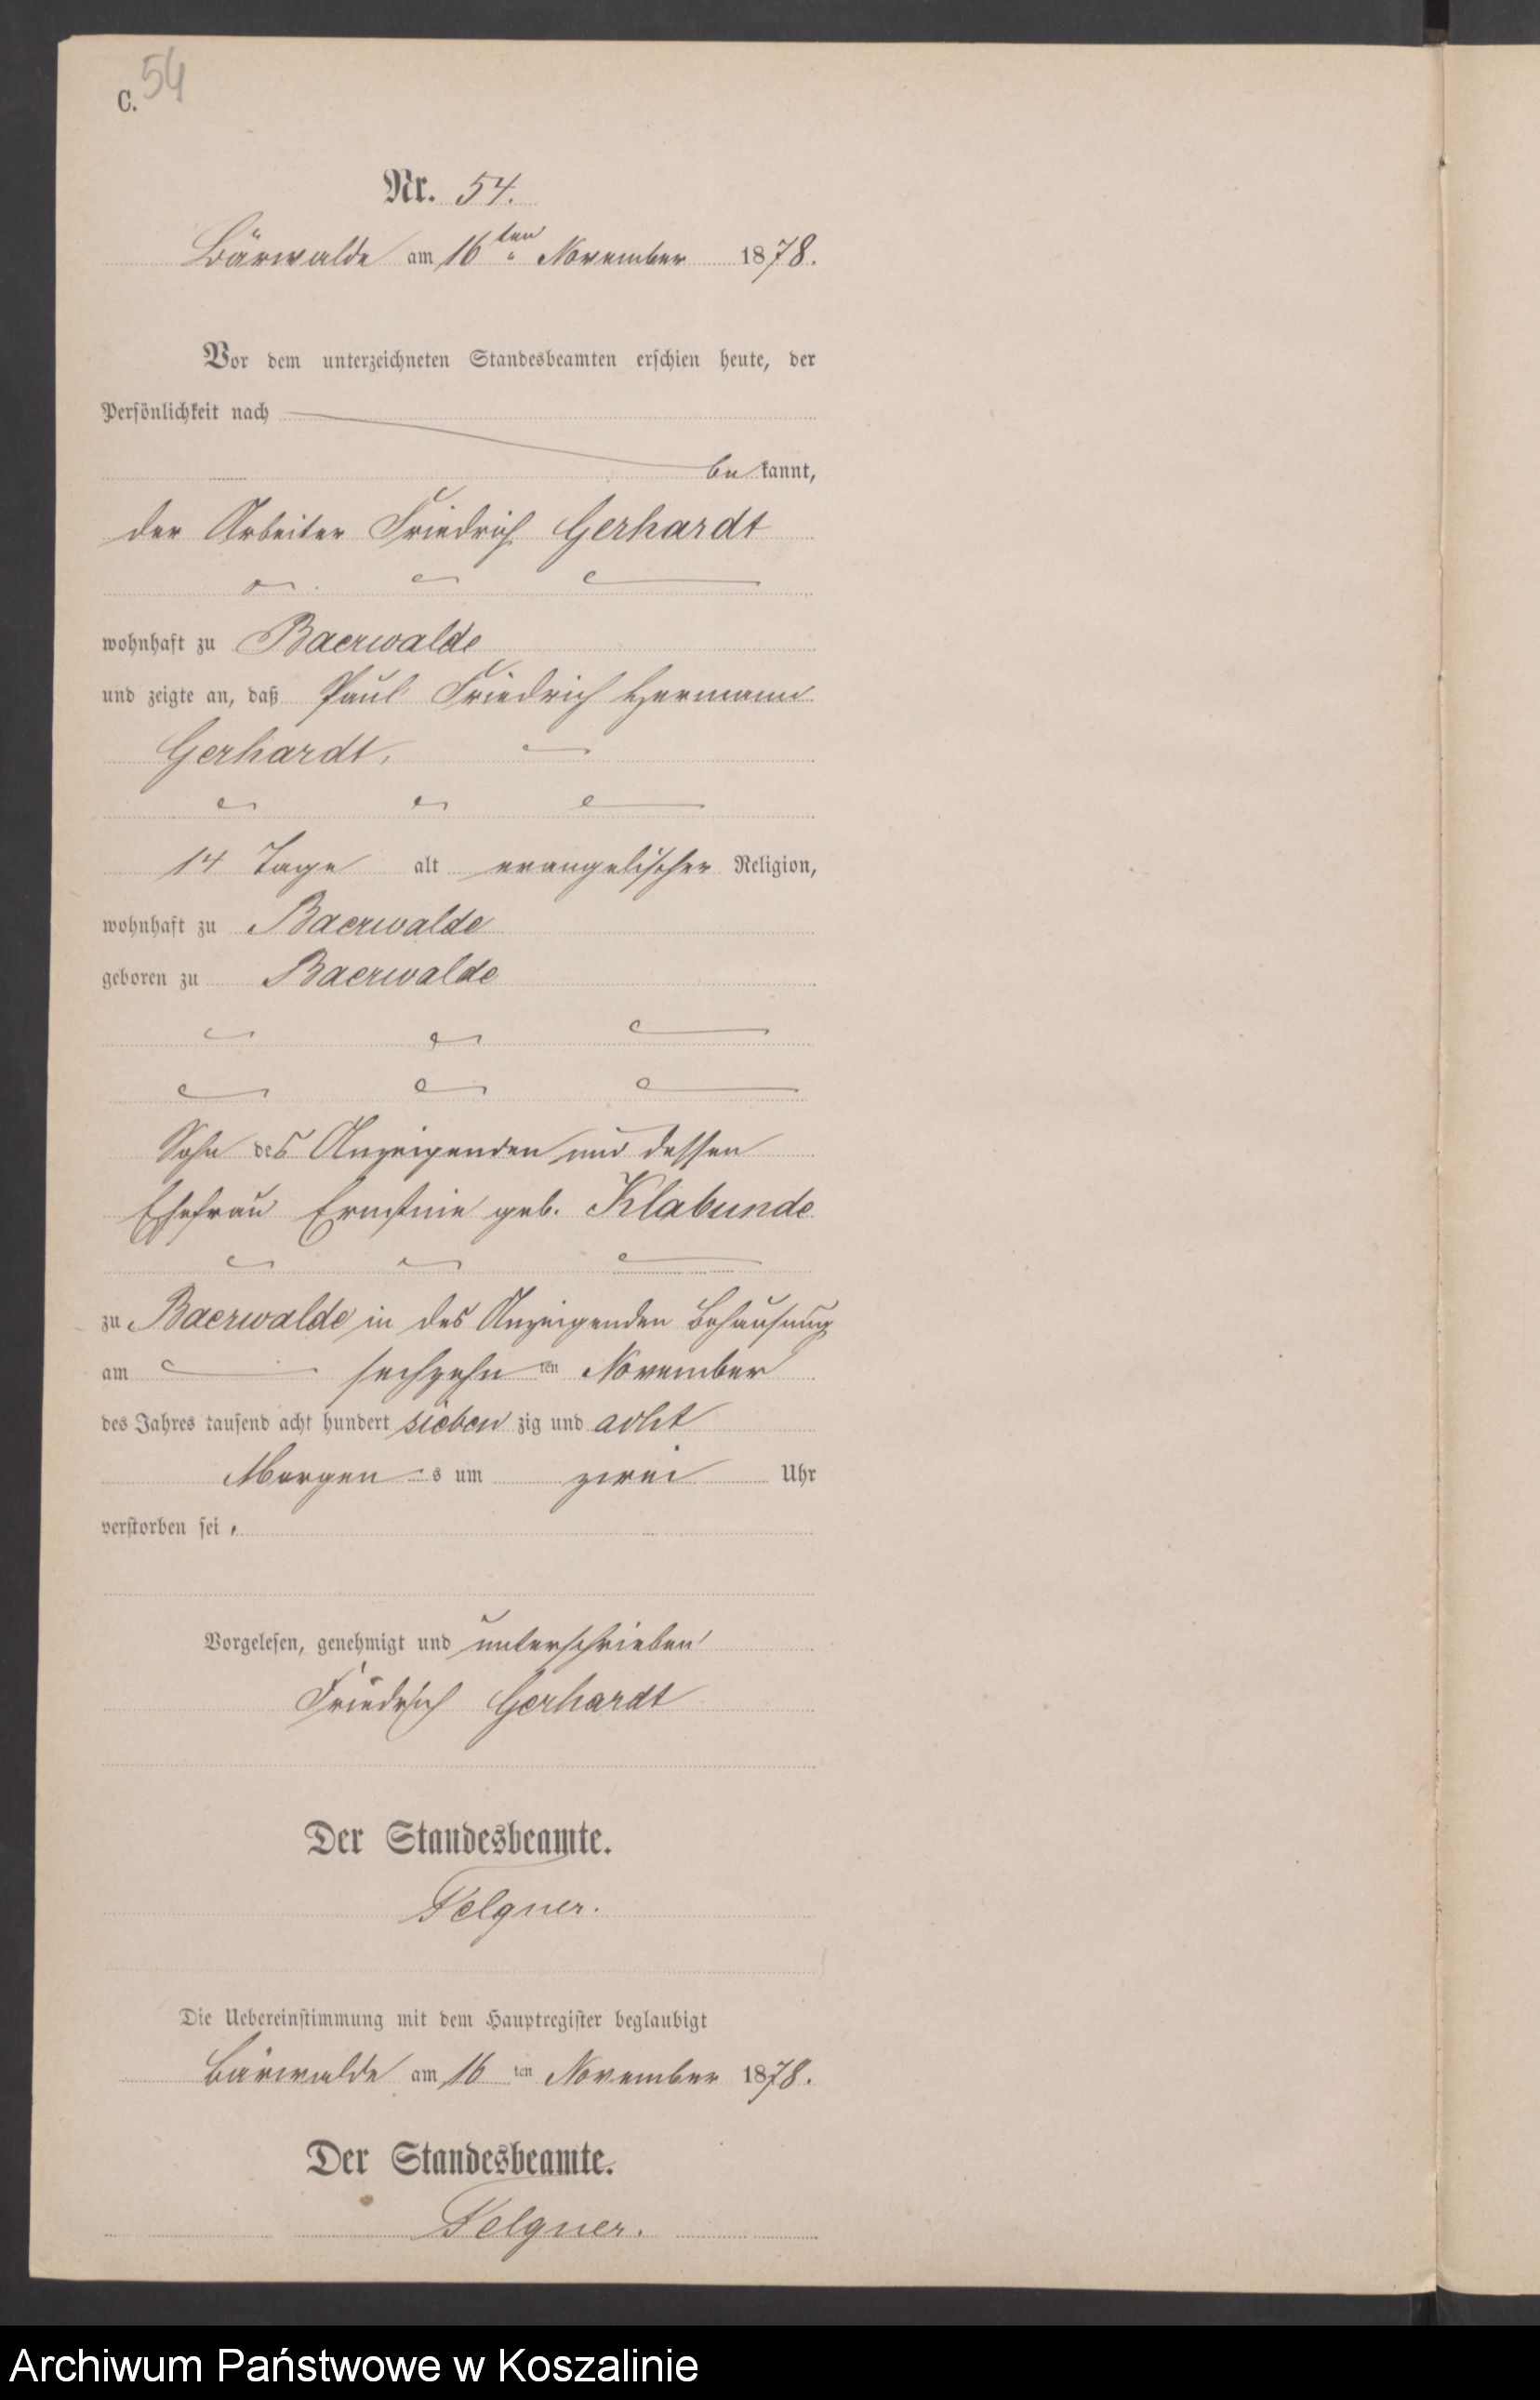 C. 54
Nr. 54.
Bärwalde am 16ten November 1878.
Vor dem unterzeichneten Standesbeamten erschien heute, der
Persönlichkeit nach
be kannt,
der Arbeiter Friedrich Gerhardt
wohnhaft zu Baerwalde
und zeigte an, daß Paul Friedrich Hermann
Gerhardt,
14 Tage alt evangelischer Religion,
wohnhaft zu Baerwalde
geboren zu Baerwalde
Sohn des Anzeigenden und dessen
Ehefrau Ernstine geb. Klabunde
zu Baerwalde in des Anzeigenden Behausung
am sechzehn ten November
des Jahres tausend acht hundert sieben zig und acht
Morgen s um zwei Uhr
verstorben sei.
Vorgelesen, genehmigt und unterschrieben
Friedrich Gerhardt
Der Standesbeamte.
Felgner.
Die Uebereinstimmung mit dem Hauptregister beglaubigt
Bärwalde am 16 ten November 1878.
Der Standesbeamte.
Felgner.
Archiwum Państwowe w Koszalinie